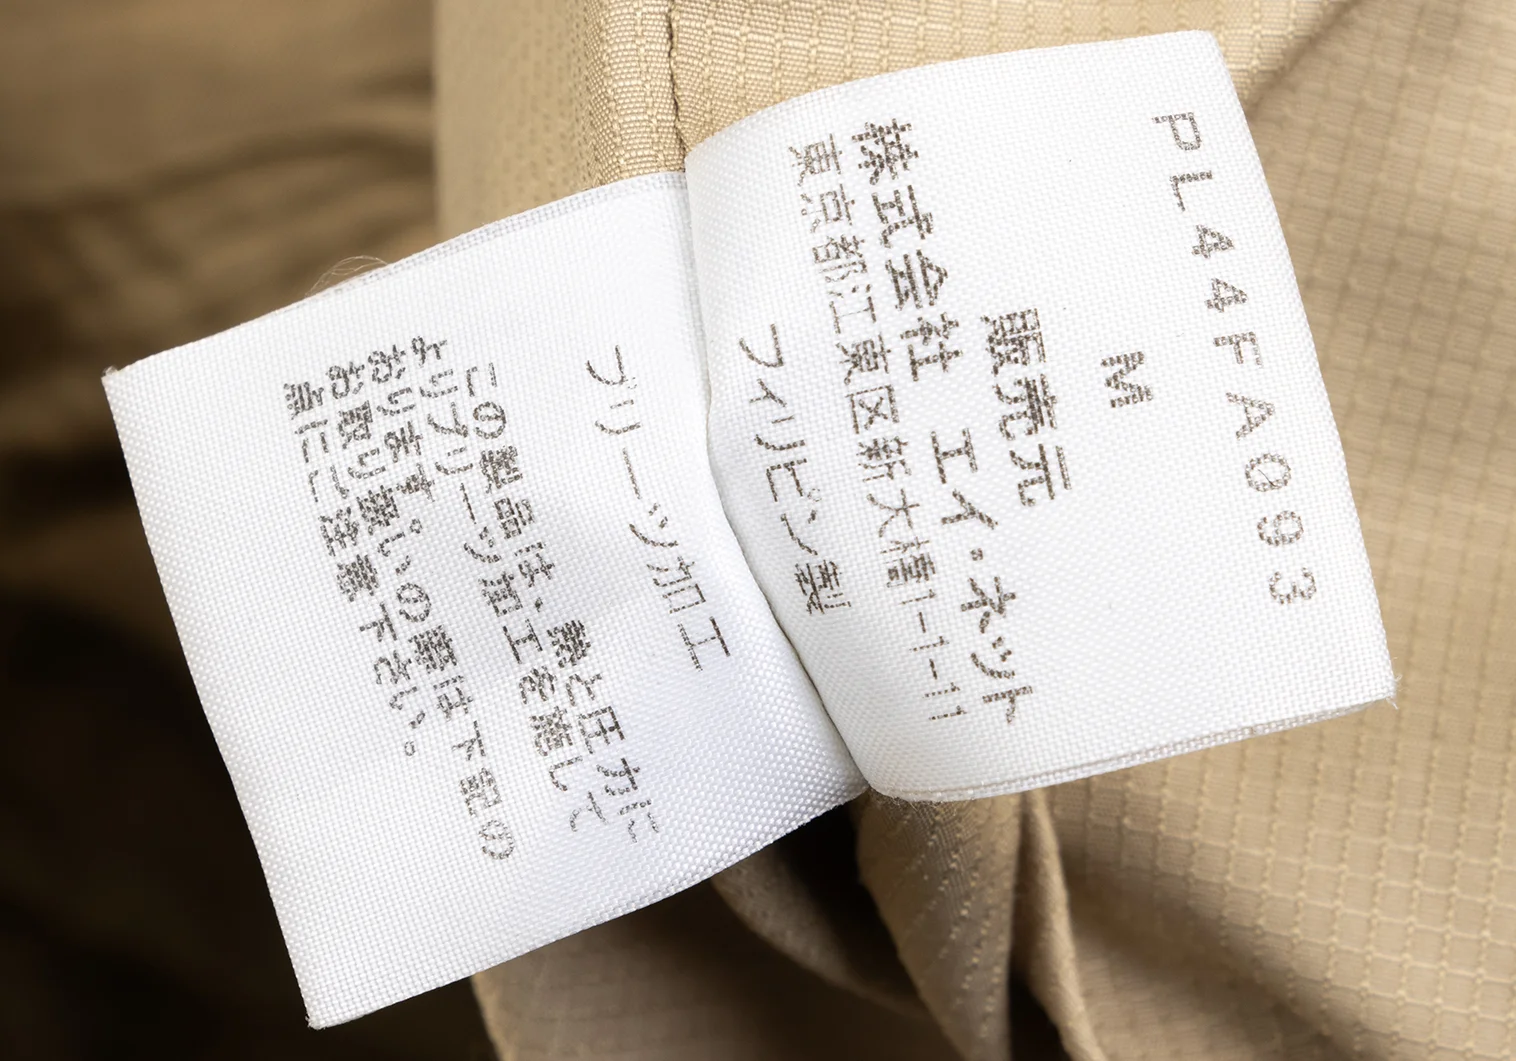 PL44FA093
M
販売元
株式会社 エイ・ネット
東京都江東区新木場1-1-11
フィリピン製
プリーツ加工
この製品は、熱と圧力に
よりプリーツ加工を施して
おります。扱いの際は下記の
お取り扱いの際は下記の
点にご注意下さい。